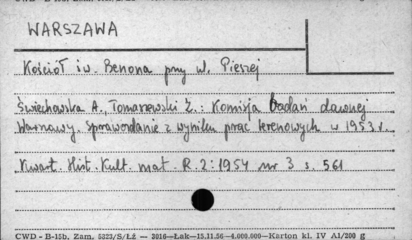 WARSZAWA
Kościół św. Benona przy ul. Pieszej
Świechowska A., Tomaszewski Z.: Komisja badań dawnej
Warszawy. Sprawozdanie z wyniku prac terenowych w 1953 r.
Kwart. Hist. Kult. mat. R. 2: 1954 nr 3 s. 561
CWD - B-15b, Zam. 5323/S/Łź — 3016—Łak—15.11.56—4.000.000—Karton kl. IV A1/200 g